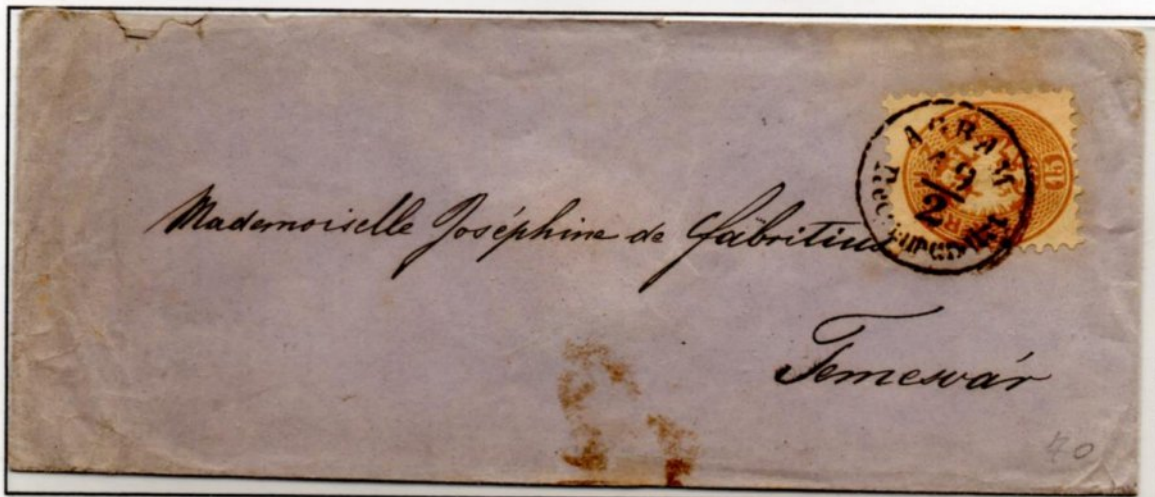 15
AGRAM
12/2
RECOMMANDIRT
Mademoiselle Joséphine de Fabritius
Temesvár